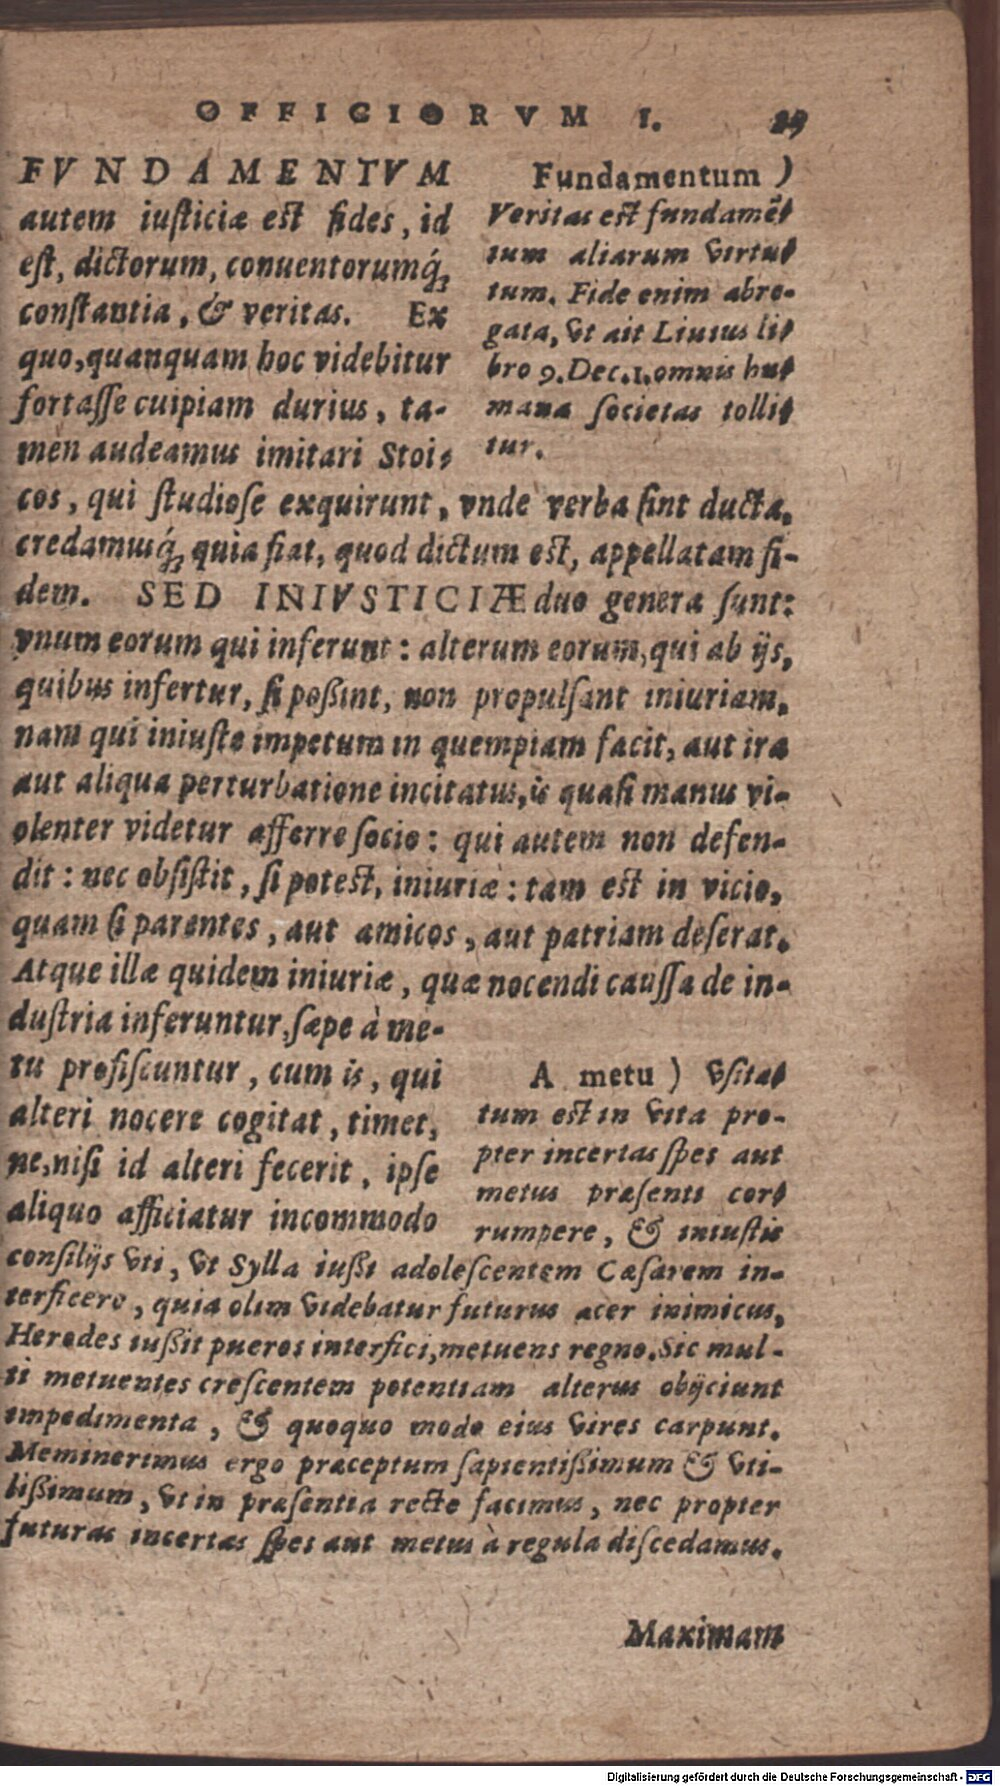 OFFICIORVM I. 29
FVNDAMENTVM
autem iuſticiæ eſt fides, id
eſt, dictorum, conuentorumq́;
conſtantia, & veritas. Ex
quo, quanquam hoc videbitur
fortaſſe cuipiam durius, ta-
men audeamus imitari Stoi-
Fundamentum )
Veritas eſt fundamē-
tum aliarum virtu-
tum. Fide enim abro-
gata, vt ait Liuius li-
bro 9. Dec. 1. omnis hu-
mana ſocietas tolli-
tur.
cos, qui ſtudioſe exquirunt, vnde verba ſint ducta,
credamusq́; quia fiat, quod dictum eſt, appellatam fi-
dem. SED INIVSTICIÆ duo genera ſunt:
vnum eorum qui inferunt: alterum eorum, qui ab ijs,
quibus infertur, ſi poßint, non propulſant iniuriam.
nam qui iniuſte impetum in quempiam facit, aut ira
aut aliqua perturbatione incitatus, is quaſi manus vi-
olenter videtur afferre ſocio: qui autem non defen-
dit: nec obſiſtit, ſi poteſt, iniuriæ: tam eſt in vicio,
quam ſi parentes, aut amicos, aut patriam deſerat.
Atque illæ quidem iniuriæ, quæ nocendi cauſſa de in-
duſtria inferuntur, ſæpe à me-
tu profiſcuntur, cum is, qui
alteri nocere cogitat, timet,
ne, niſi id alteri fecerit, ipſe
aliquo afficiatur incommodo
A metu ) Vſita-
tum eſt in vita pro-
pter incertas ſpes aut
metus præſenti cor-
rumpere, & iniuſtis
conſilijs vti, vt Sylla iußi adoleſcentem Cæſarem in-
terficere, quia olim videbatur futurus acer inimicus,
Herodes iußit pueros interfici, metuens regno. Sic mul-
ti metuentes creſcentem potentiam alterius obijciunt
impedimenta, & quoquo modo eius vires carpunt.
Meminerimus ergo præceptum ſapientißimum & vti-
lißimum, vt in præſentia recte faciamus, nec propter
futuras incertas ſpes aut metus à regula diſcedamus.
Maximam
Digitalisierung gefördert durch die Deutsche Forschungsgemeinschaft - DFG